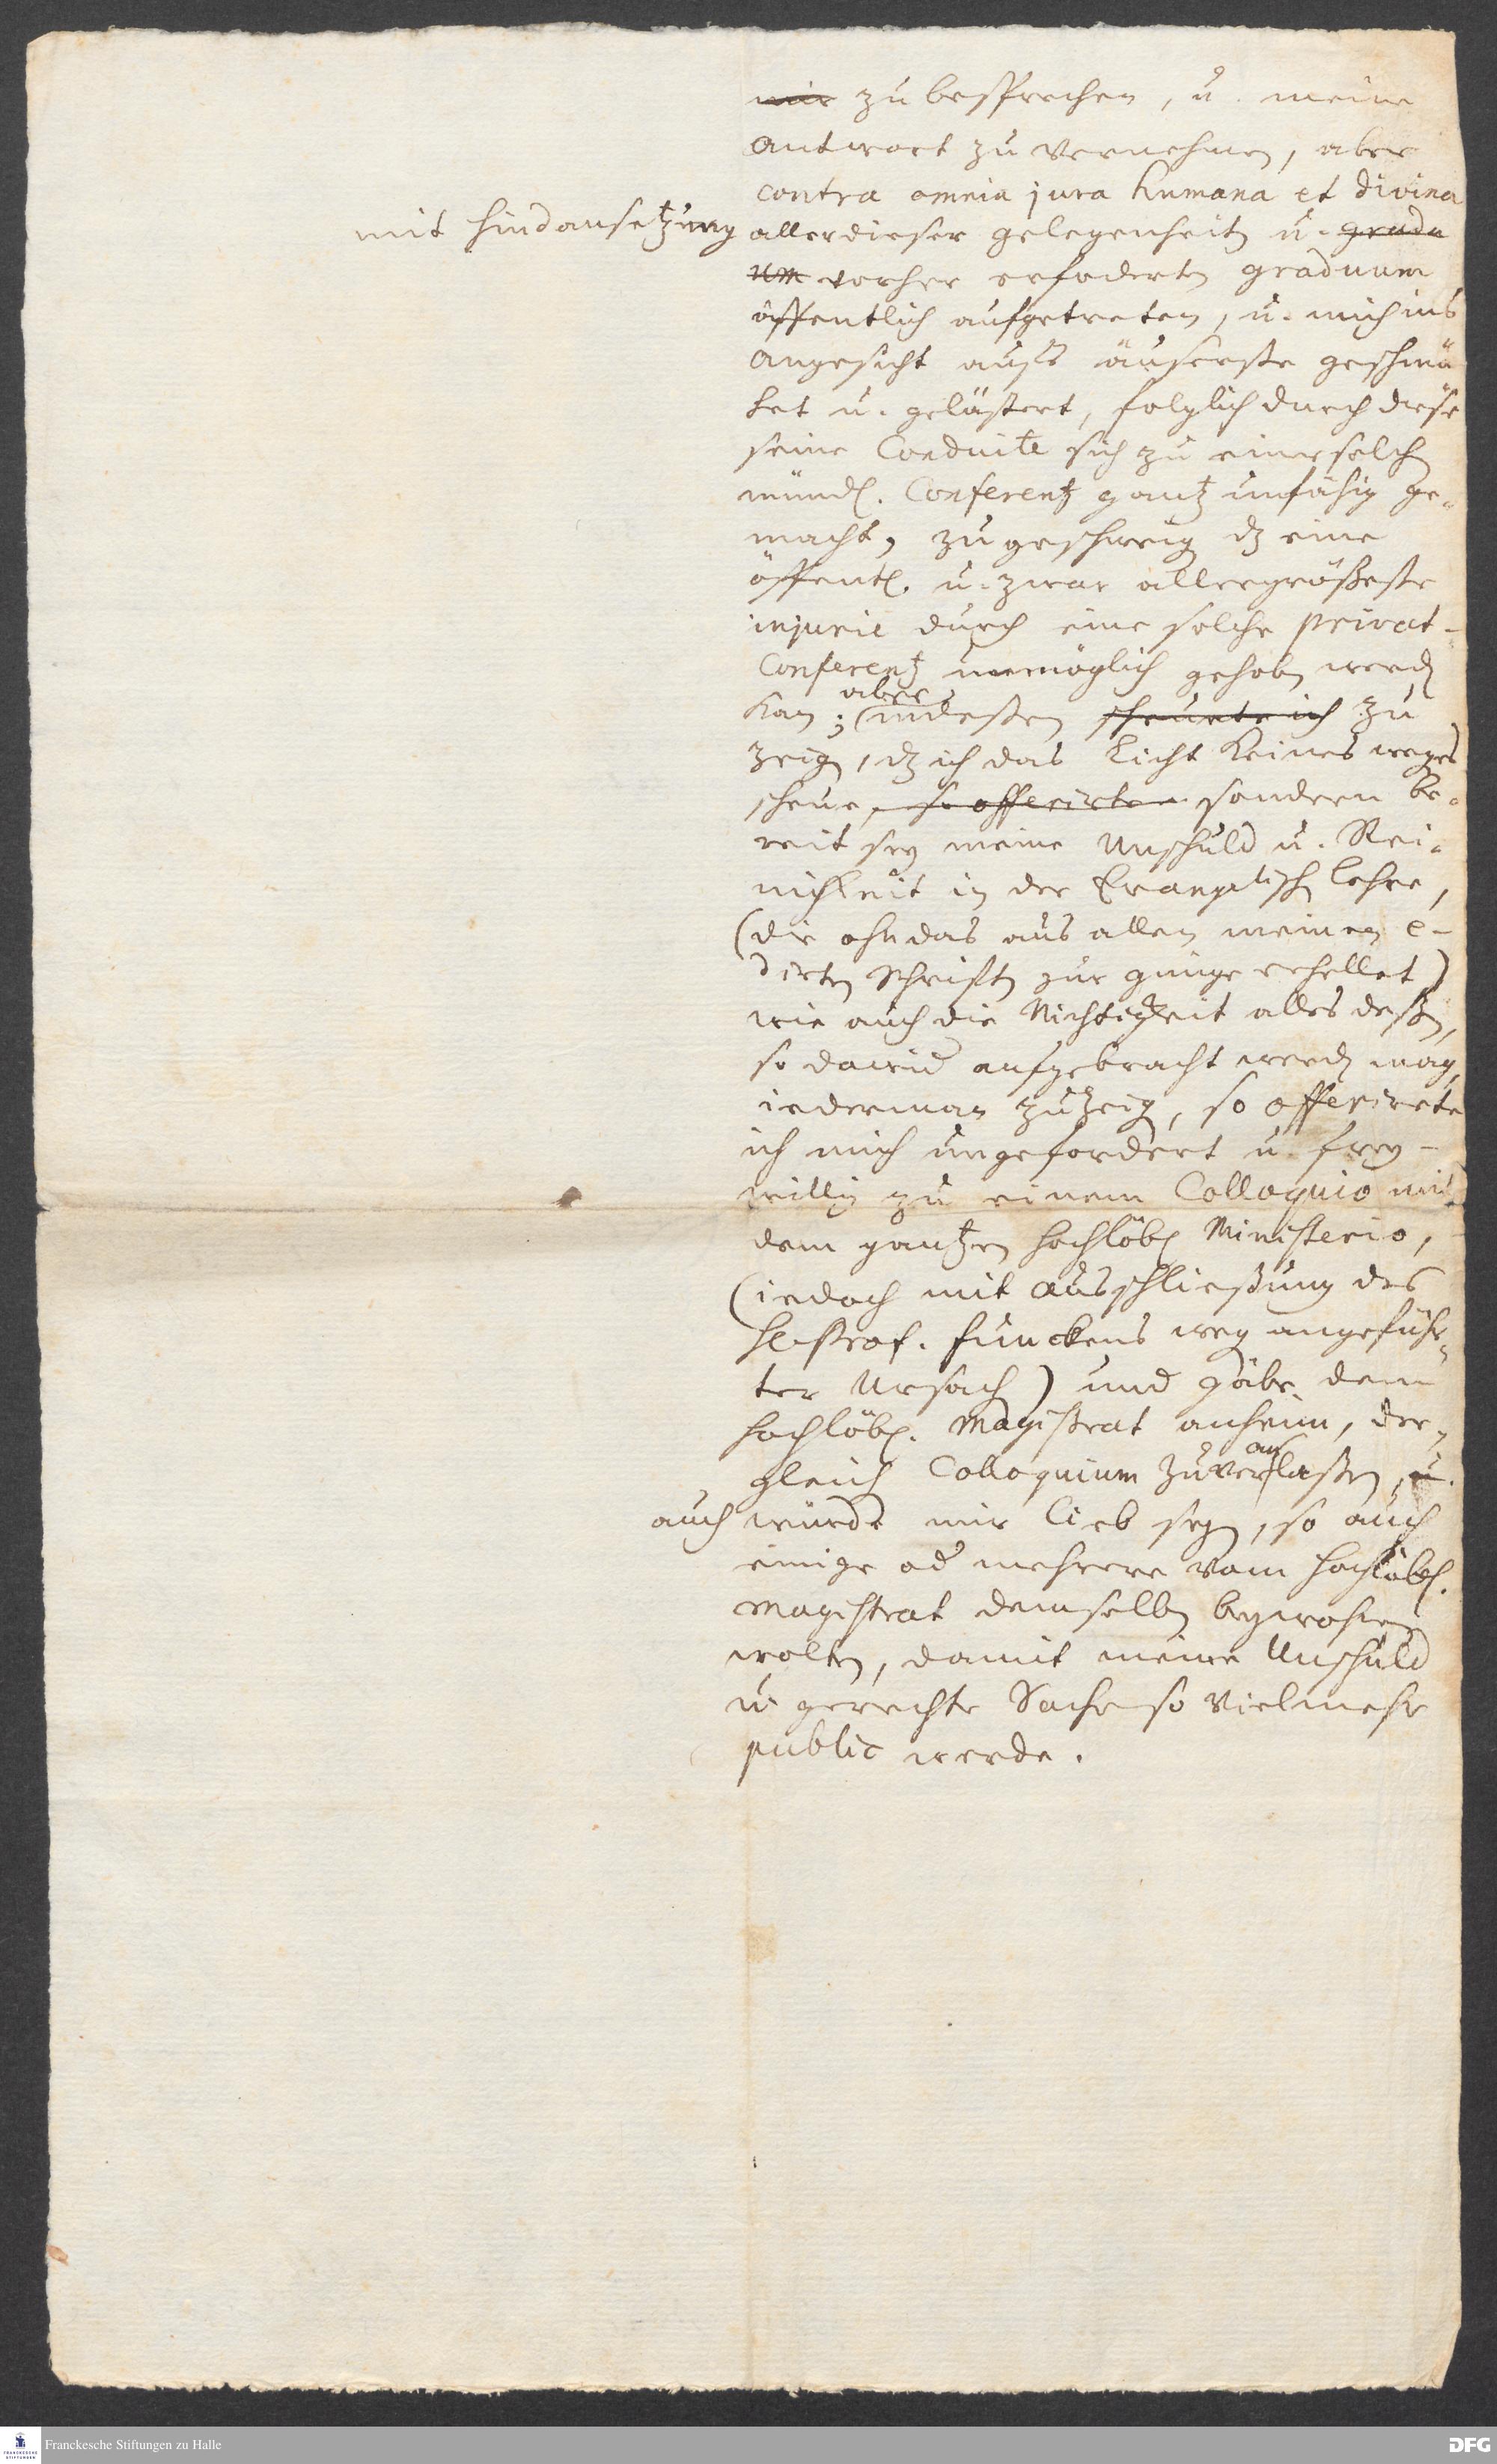 mir zu besprechen, u. meine
Antwort zu vernehmen, aber
contra omnia jura humana et divina
mit hindansetzung aller dieser gelegenheit u. gradu
um vorher erfoderten graduum
öffentlich aufgetreten, u. mich ins
Angesicht aufs äuserste geschmä
het u. gelästert, folglich durch diese
seine Conduite sich zu einer solch
mündl. Conferentz gantz unfähig ge-
macht, zu geschweig dz eine
öffentl. u. zwar allergrößeste
injurie durch eine solche privat-
Conferentz unmöglich gehoben werd
kan; aber indessen scheuete ich zu
zeig, dz ich das Licht keines weges
scheue, so offerirte sondern be-
reit sey meine Unschuld u. Rei-
nichkeit in der Evangelisch Lehre,
(die ohndas aus allen meinen e-
dirten Schriften zur gnüge erhellet)
wie auch die Nichtigkeit alles deßen,
so dawid aufgebracht werd mag,
iederman zu zeig, so offerirete
ich mich ungefordert u. frey-
willig zu einem Colloquio mit
dem gantzen hochlöbl Ministerio,
(iedoch mit Ausschließung des
H. Prof. Funckens weg angeführ-
ter Ursach) und gäbe dem
hochlöbl. Magistrat anheim, der-
gleich Colloquium zu veranlaßen, u.
auch würde mir lieb seyn, so auch
einige od mehrere vom hochlöbl.
Magistrat demselben beywohnen
wolten, damit meine Unschuld
u. gerechte Sache so vielmehr
public werde.
Franckesche Stiftungen zu Halle
DFG